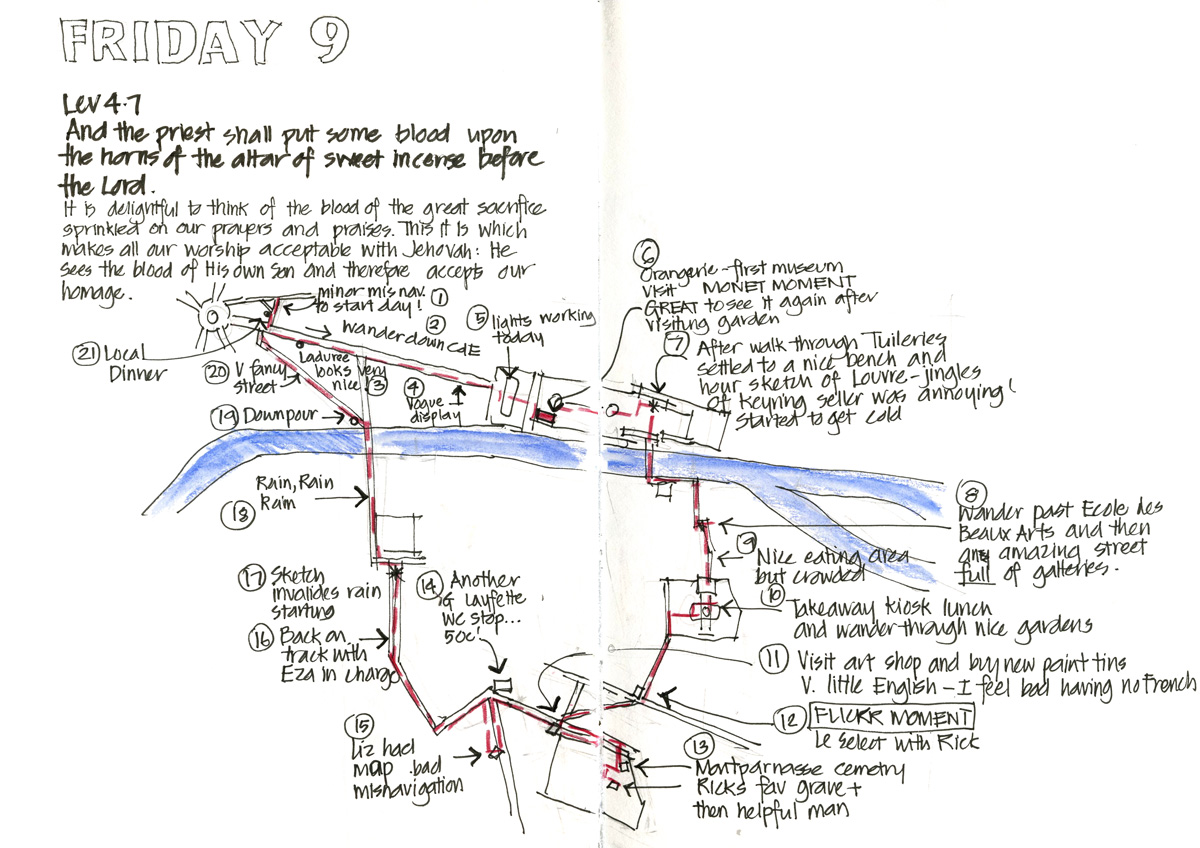 FRIDAY 9
Lev 4.7
And the priest shall put some blood upon
the horns of the altar of sweet incense before
the Lord.
It is delightful to think of the blood of the great sacrifice
sprinkled on our prayers and praises. This it is which
makes all our worship acceptable with Jehovah: He
sees the blood of His own Son and therefore accepts our
homage.
minor mis nav.
to start day! 1
2 wander down CdE
Laduree
looks very
nice! 3
4
Vogue
display
5 lights working
today
6
Orangerie - first museum
visit MONET MOMENT
GREAT to see it again after
visiting garden
7 After walk through Tuileries
settled to a nice bench and
hour sketch of Louvre - jingles
of keyring seller was annoying!
Started to get cold
8
Wander past Ecole des
Beaux Arts and then
amazing street
full of galleries.
9 Nice eating area
but crowded
10 Takeaway kiosk lunch
and wander through nice gardens
11 Visit art shop and buy new paint tins
V. little English - I feel bad having no French
12 FLICKR MOMENT
Le Select with Rick
13
Montparnasse cemetry
Ricks fav grave +
then helpful man
14 Another
G Layfette
WC stop...
50c!
15
Liz had
map .bad
misnavigation
16 Back on
track with
Eza in charge
17 Sketch
invalides rain
starting
18 Rain, Rain
Rain
19 Downpour
20 V fancy
street
21 Local
Dinner